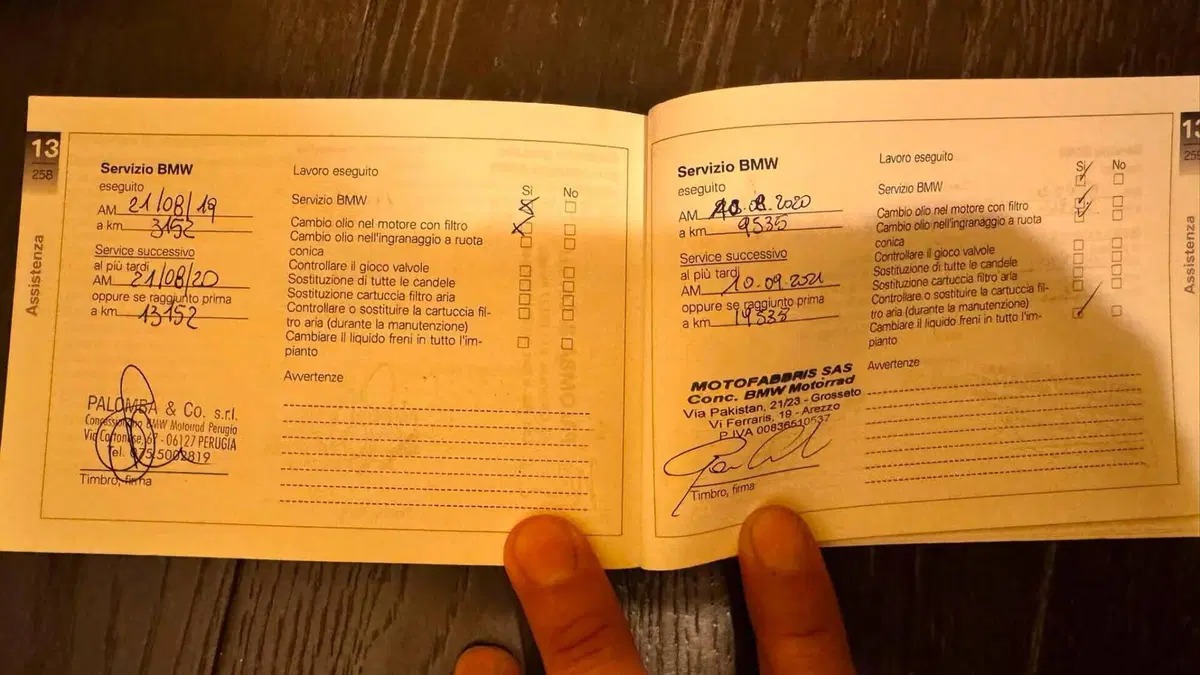 13
258
Assistenza
Servizio BMW
eseguito
AM 21/08/19
a km 3152
Service successivo
al più tardi
AM 21/08/20
oppure se raggiunto prima
a km 13152
PALOMBA & Co. s.r.l.
Concessionario BMW Motorrad Perugia
Via Cortonese, 67 - 06127 PERUGIA
Tel. 075.5002819
Timbro, firma
Lavoro eseguito
Si No
Servizio BMW
Cambio olio nel motore con filtro
Cambio olio nell'ingranaggio a ruota
conica
Controllare il gioco valvole
Sostituzione di tutte le candele
Sostituzione cartuccia filtro aria
Controllare o sostituire la cartuccia fil-
tro aria (durante la manutenzione)
Cambiare il liquido freni in tutto l'im-
pianto
Avvertenze
Servizio BMW
eseguito
AM .2020
a km 9535
Service successivo
al più tardi
AM 10.09.2021
oppure se raggiunto prima
a km 19535
MOTOFABBRIS SAS
Conc. BMW Motorrad
Via Pakistan, 21/23 - Grosseto
Vi Ferraris, 19 - Arezzo
P.IVA 00836510537
Timbro, firma
Lavoro eseguito
Si No
Servizio BMW
Cambio olio nel motore con filtro
Cambio olio nell'ingranaggio a ruota
conica
Controllare il gioco valvole
Sostituzione di tutte le candele
Sostituzione cartuccia filtro aria
Controllare o sostituire la cartuccia fil-
tro aria (durante la manutenzione)
Cambiare il liquido freni in tutto l'im-
pianto
Avvertenze
13
Assistenza